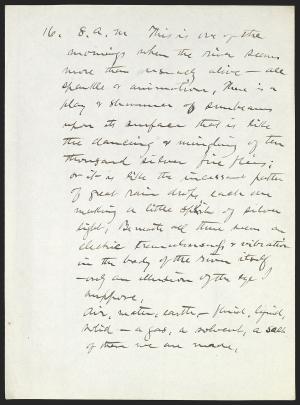 16. 8. a. m This is one of the
mornings when the river seems
more than usually alive — all
sparkle & animation, There is a
play & shimmer of sunbeams
upon its surface that is like
the dancing & mingling of ten
thousand silver fire flies;
or it is like the incessant patter
of great rain drops, each one
making a little splash of silver
light; Beneath all there seems an
electric tremulousness & vibration
in the body of the river itself
— only an illusion of the eye I
suppose,
Air, water, earth, — fluid, liquid,
solid — a gas, a solvent, a salt
of these we are made,